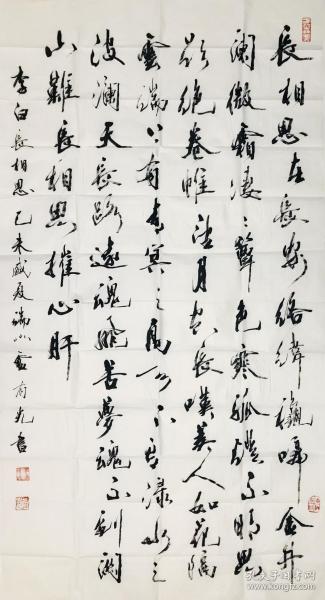 長相思在長安絡緯龝啼金井
瀾微霜淒〻簟色寒孤燈不明思
欲絕卷帷望月空長嘆美人如花隔
雲端上有青冥之高天下有淥水之
波瀾天長路遠魂飛苦夢魂不到關
山難長相思摧心肝
李白長相思己未盛夏瑞有光書
孔夫子旧书网